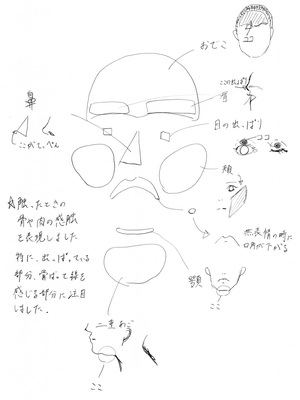 おでこ
ここの出っぱり
眉
鼻
ここがてっぺん
目の出っぱり
ココ
頬
無表情の時に
口角が下がる
触ったときの
骨や肉の感触
を表現しました
特に、出っぱっている
部分、骨ばって骨を
感じる部分に注目
しました。
顎
ここ
二重あご
ここ